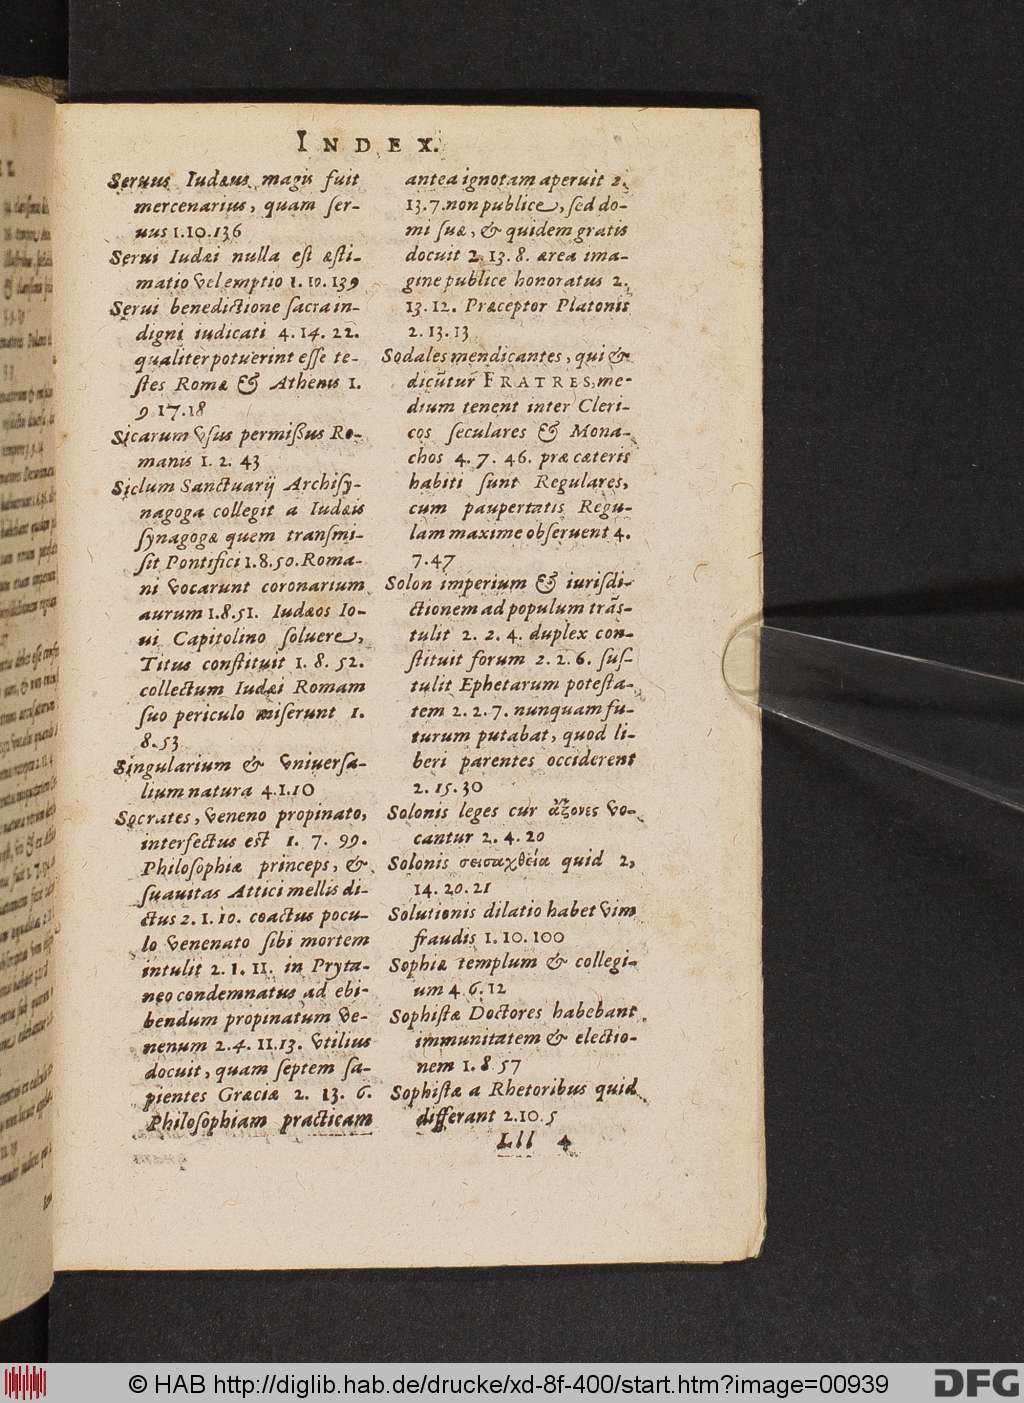 INDEX.
Seruus Iudæus magis fuit
mercenarius, quam ser-
uus 1.10.136
Serui Iudæi nulla est æsti-
matio vel emptio 1.10.139
Serui benedictione sacra in-
digni iudicati 4.14.22.
qualiter potuerint esse te-
stes Romæ & Athenis 1.
9 17.18
Sicarum vsus permißus Ro-
manis 1. 2. 43
Siclum Sanctuarij Archisy-
nagoga collegit a Iudæis
synagogæ quem transmi-
sit Pontifici 1.8.50. Roma-
ni vocarunt coronarium
aurum 1.8.51. Iudæos Io-
ui Capitolino soluere,
Titus constituit 1. 8. 52.
collectum Iudæi Romam
suo periculo miserunt 1.
8.53
Singularium & vniuersa-
lium natura 4.1.10
Socrates, veneno propinato,
intersectus est 1. 7. 99.
Philosophiæ princeps, &
suauitas Attici mellis di-
ctus 2. 1. 10. coactus pocu-
lo venenato sibi mortem
intulit 2. 1. 11. in Pryta-
neo condemnatus ad ebi-
bendum propinatum ve-
nenum 2.4. 11.13. vtilius
docuit, quam septem sa-
pientes Græciæ 2. 13. 6.
Philosophiam practicam
antea ignotam aperuit 2.
13.7. non publice, sed do-
mi suæ, & quidem gratis
docuit 2. 13. 8. ærea ima-
gine publice honoratus 2.
13.12. Præceptor Platonis
2. 13.13
Sodales mendicantes, qui &
dicũtur FRATRES, me-
dium tenent inter Cleri-
cos seculares & Mona-
chos 4. 7. 46. præ cæteris
habiti sunt Regulares,
cum paupertatis Regu-
lam maxime obseruent 4.
7.47
Solon imperium & iurisdi-
ctionem ad populum trãs-
tulit 2. 2. 4. duplex con-
stituit forum 2. 2. 6. sus-
tulit Ephetarum potesta-
tem 2. 2. 7. nunquam fu-
turum putabat, quod li-
beri parentes occiderent
2. 15. 30
Solonis leges cur ἄξονες vo-
cantur 2. 4. 20
Solonis σεισαχθεία quid 2,
14. 20. 21
Solutionis dilatio habet vim
fraudis 1. 10. 100
Sophiæ templum & collegi-
um 4 6.12
Sophistæ Doctores habebant
immunitatem & electio-
nem 1.8 57
Sophistæ a Rhetoribus quid
differant 2.10.5
Lll 4
© HAB http://diglib.hab.de/drucke/xd-8f-400/start.htm?image=00939
DFG